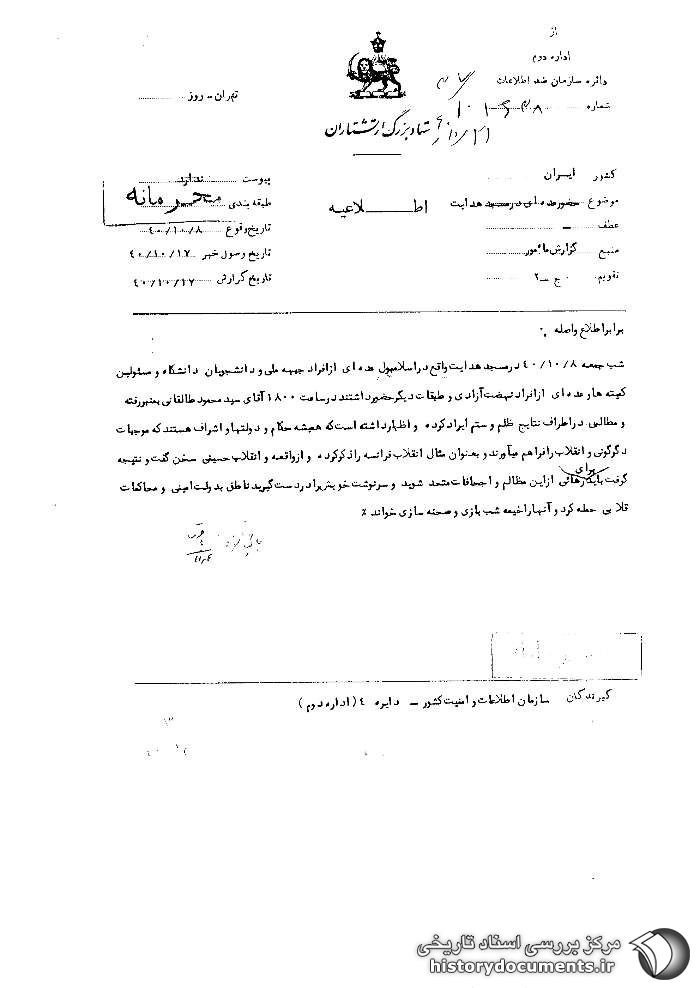 از
اداره دوم
دائره سازمان ضد اطلاعات
شماره
تهران - روز
ستاد بزرگ ارتشتاران
کشور ایران
موضوع حضور عده ای در مسجد هدایت
عطف -
منبع گزارش مأمور
تقویم ج - ۲
اطلاعیه
پیوست ندارد
طبقه بندی محرمانه
تاریخ وقوع ۴۰/۱۰/۸
تاریخ وصول خبر ۴۰/۱۰/۱۷
تاریخ گزارش ۴۰/۱۰/۱۷
برابر اطلاع واصله :
شب جمعه ۴۰/۱۰/۸ در مسجد هدایت واقع در اسلامبول عده ای از افراد جبهه ملی و دانشجویان دانشگاه و مسئولین
کمیته ها و عده ای از افراد نهضت آزادی و طبقات دیگر حضور داشتند در ساعت ۱۸۰۰ آقای سید محمود طالقانی بمنبر رفته
و مطالبی در اطراف نتایج ظلم و ستم ایراد کرده و اظهار داشته است که همیشه حکام و دولتها و اشراف هستند که موجبات
دگرگونی و انقلاب را فراهم میآورند و بعنوان مثال انقلاب فرانسه را ذکر کرده و از واقعه و انقلاب حسینی سخن گفت و نتیجه
گرفت باید برای رهائی از این مظالم و اجحافات متحد شوید و سرنوشت خویش را در دست گیرید ناطق به دولت امینی و محاکمات
قلابی حمله کرد و آنها را خیمه شب بازی و صحنه سازی خواند ٪
گیرندگان سازمان اطلاعات و امنیت کشور - دایره ٤ (اداره دوم)
مرکز بررسی اسناد تاریخی
historydocuments.ir